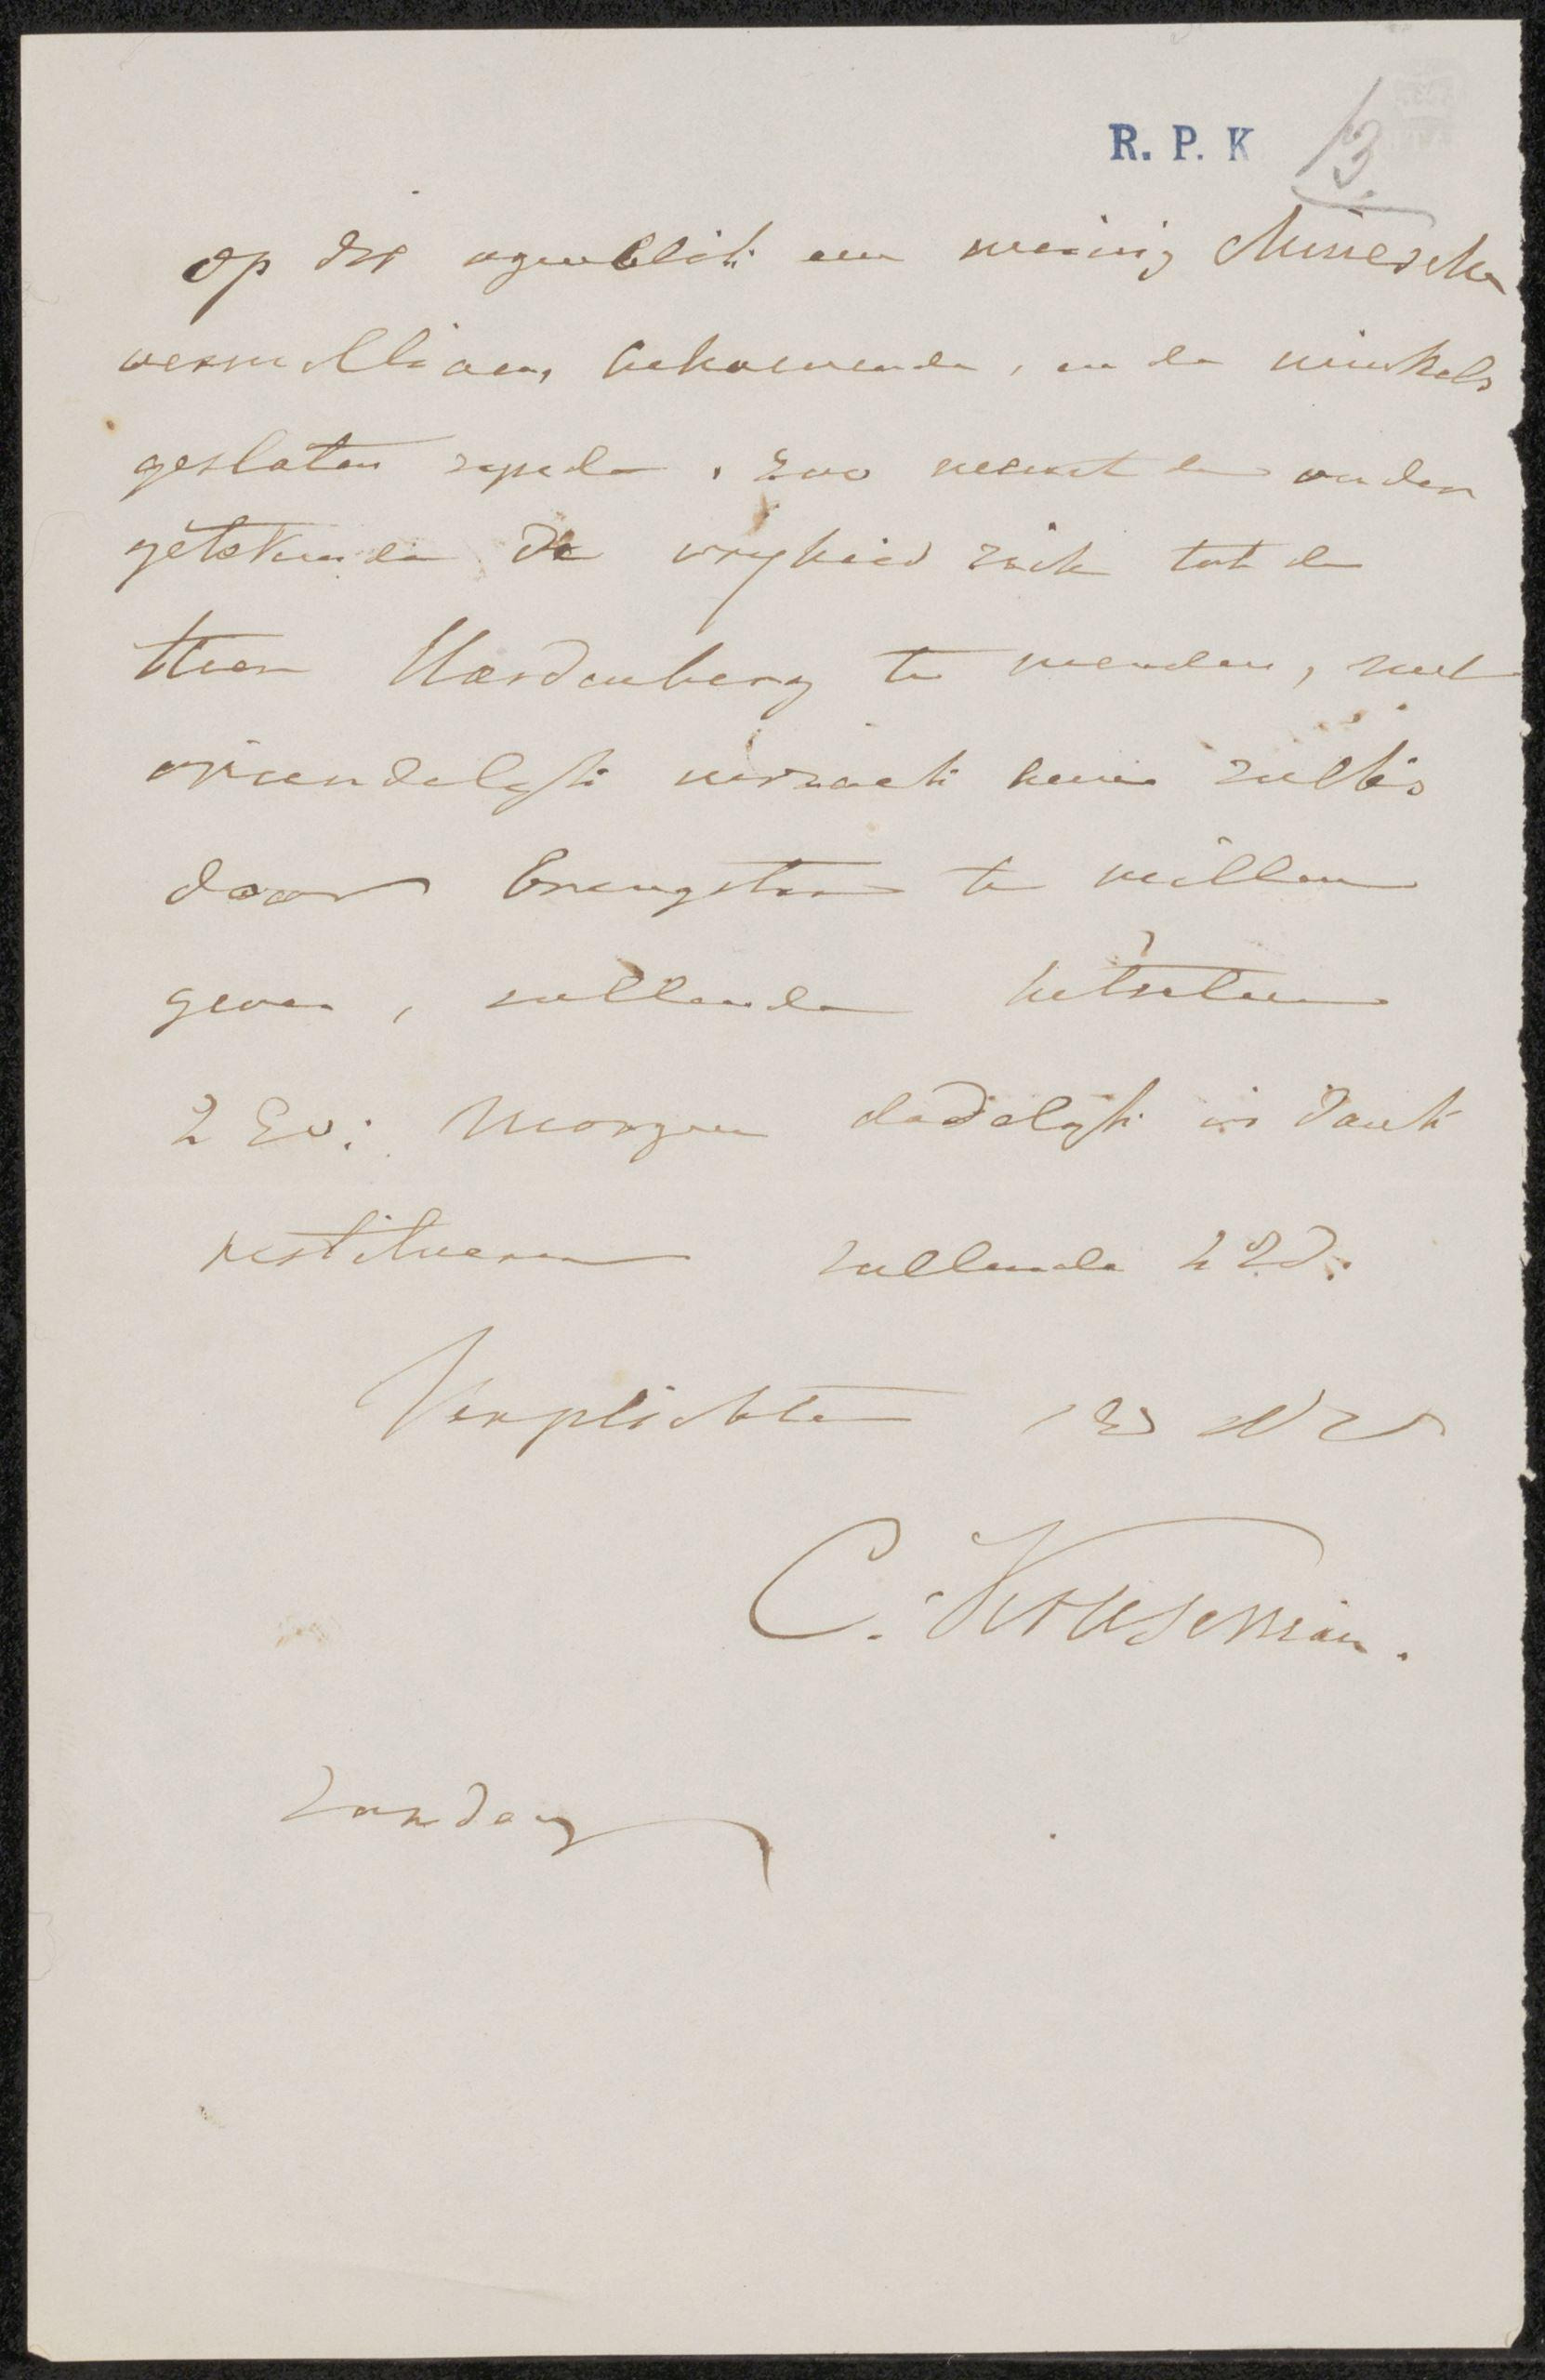 R. P. K
13.
op dit ogenblik een weinig Chinesche
vermillioen, behoevende, en de winkels
gesloten zynde, zoo neemt de onder
getekende de vryheid zich tot de
Heer Hardenberg te wenden, met
vriendelyk verzoek hem zulks
door brengster te willen
geven, zullende hetzelve
Morgen dadelyk in dank
restitueren zullende
Verplichten
C. Kruseman.
Zondag